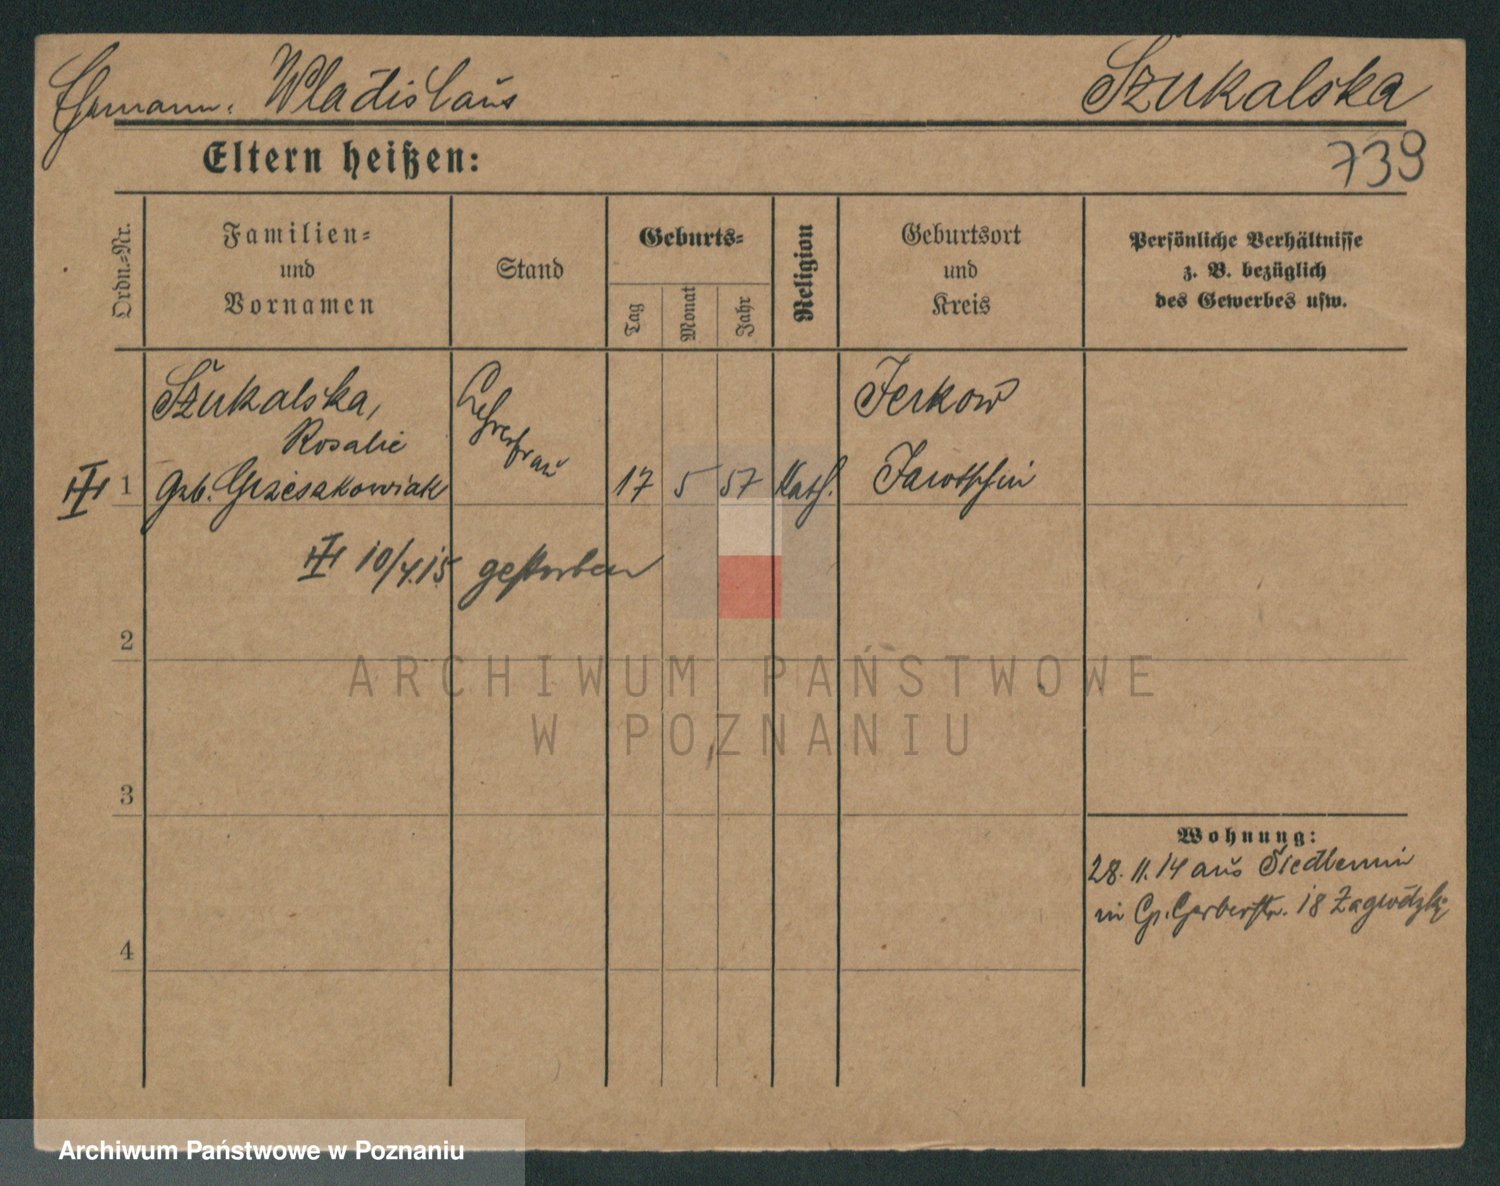 Ehemann: Wladislaus Szukalska
Eltern heißen:
739
Ordn.-Nr.
Familien-
und
Vornamen
Stand
Geburts-
Tag
Monat
Jahr
Religion
Geburtsort
und
Kreis
Persönliche Verhältnisse
z. B. bezüglich
des Gewerbes usw.
Szukalska,
Rosalie
1 geb. Grzeszkowiak
17 5 57 Kath.
Jerkow
Jarotschin
10/4.15 gestorben
2
3
4
Wohnung:
28.11.14 aus Siedlemin
in Gr. Gerberstr. 18
ARCHIWUM PAŃSTWOWE
W POZNANIU
Archiwum Państwowe w Poznaniu